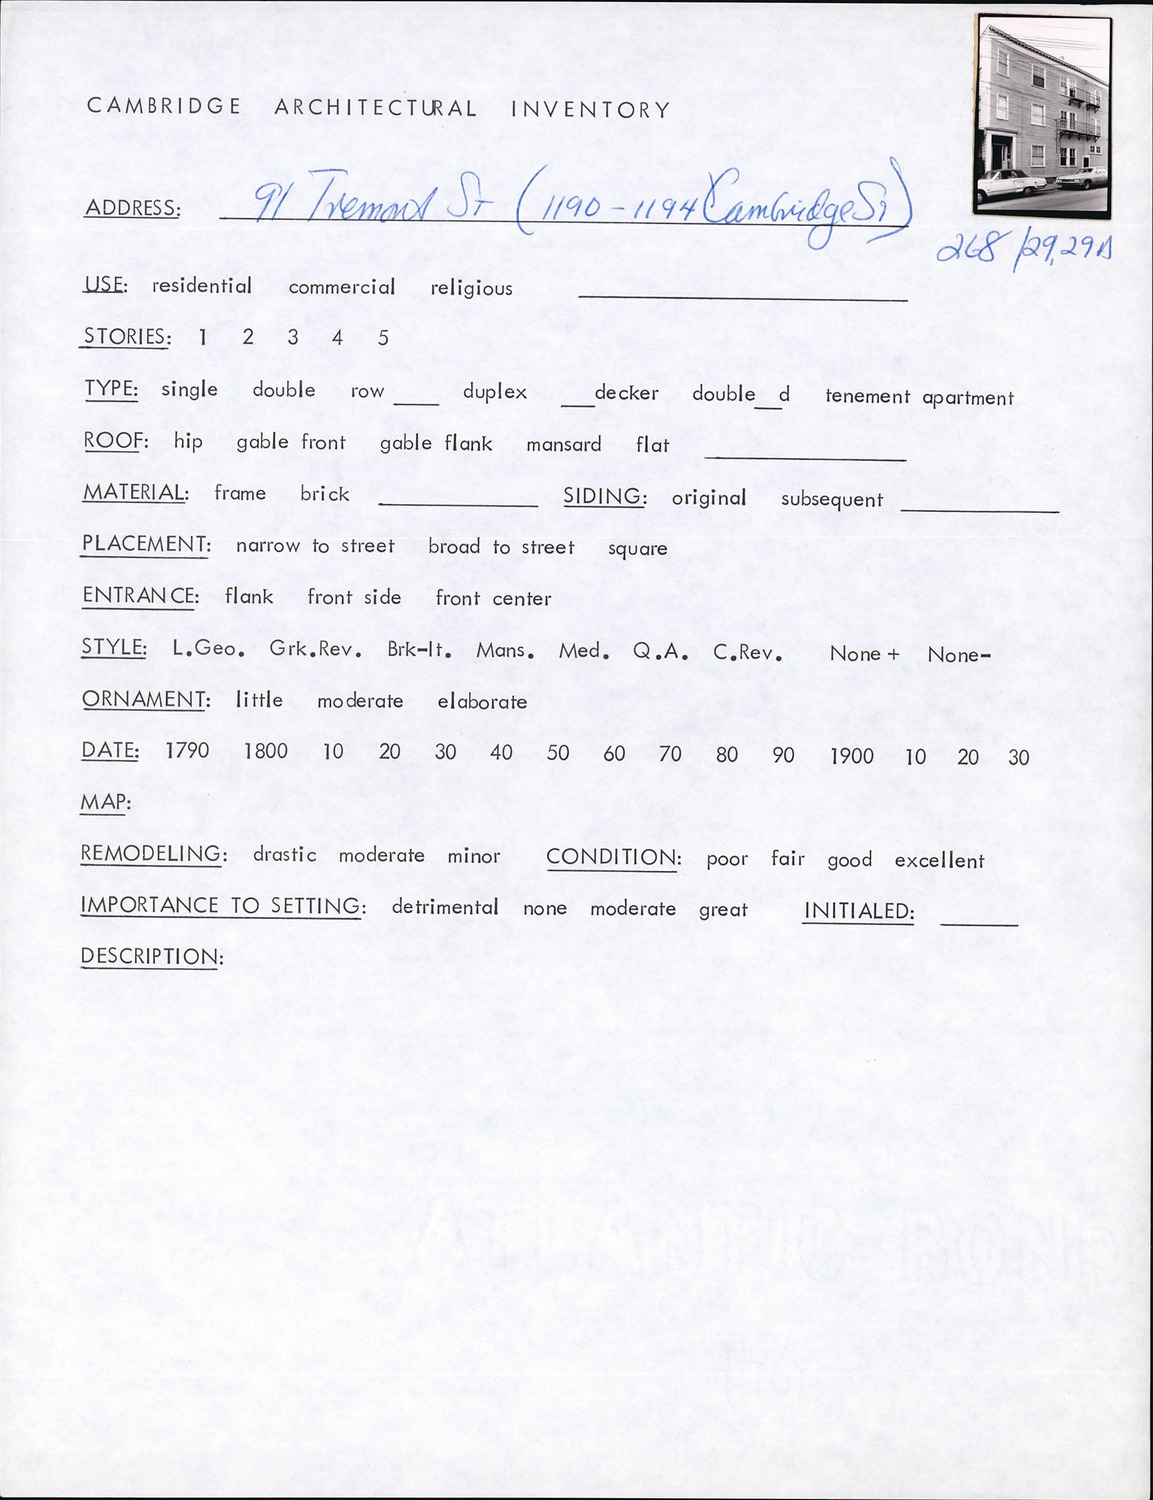 CAMBRIDGE ARCHITECTURAL INVENTORY
ADDRESS: 91 Tremont St (1190-1194 Cambridge St)
268/29,29A
USE: residential commercial religious
STORIES: 1 2 3 4 5
TYPE: single double row ___ duplex ___decker double__d tenement apartment
ROOF: hip gable front gable flank mansard flat
MATERIAL: frame brick ___ SIDING: original subsequent ___
PLACEMENT: narrow to street broad to street square
ENTRANCE: flank front side front center
STYLE: L.Geo. Grk.Rev. Brk-It. Mans. Med. Q.A. C.Rev. None+ None-
ORNAMENT: little moderate elaborate
DATE: 1790 1800 10 20 30 40 50 60 70 80 90 1900 10 20 30
MAP:
REMODELING: drastic moderate minor CONDITION: poor fair good excellent
IMPORTANCE TO SETTING: detrimental none moderate great INITIALED: ___
DESCRIPTION: